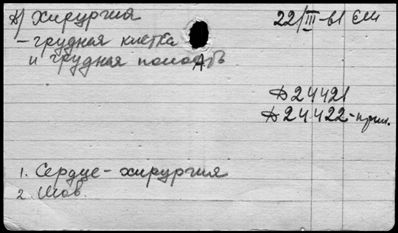 А) Хирургия
22/III-61 ЕМ
- грудная клетка
и грудная полость
Д24421
Д24422-прил.
1. Сердце - хирургия
2. Шов.